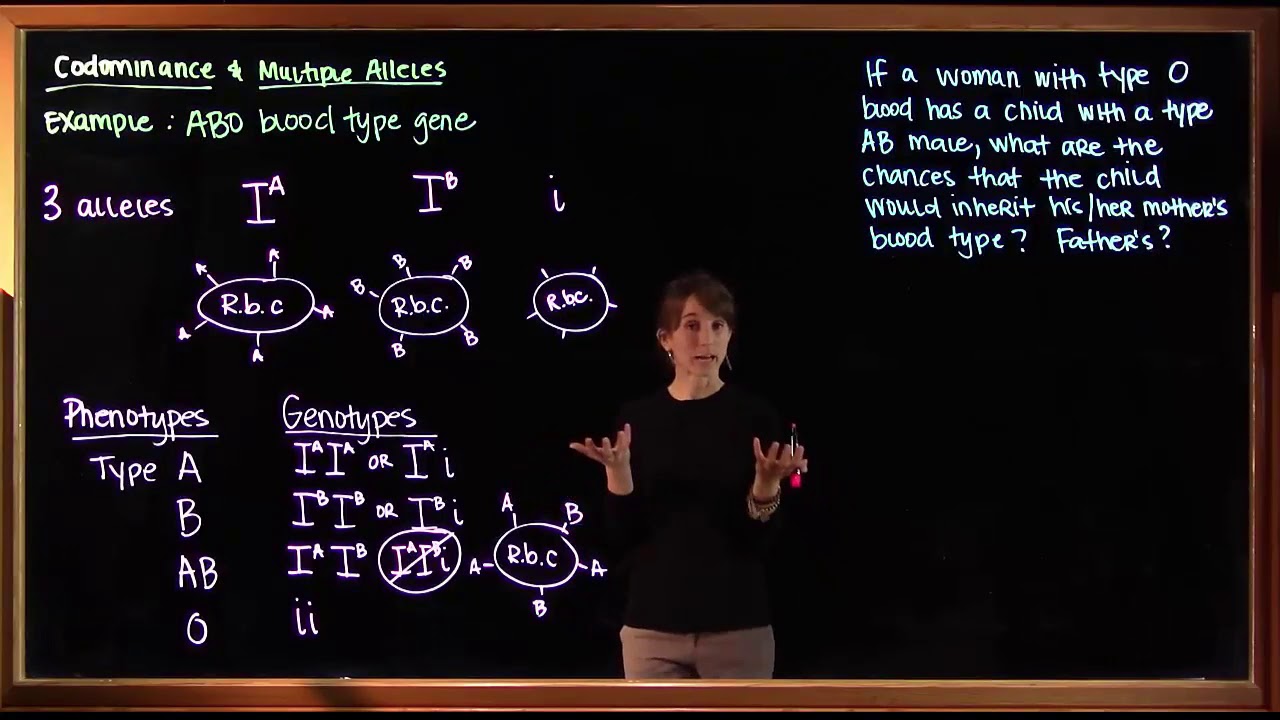 Codominance & Multiple Alleles
Example: ABO blood type gene
3 alleles I^A I^B i
A A A A A R.b.c
B B B B B R.b.c.
R.b.c.
Phenotypes Genotypes
Type A I^A I^A OR I^A i
B I^B I^B OR I^B i
AB I^A I^B I^A I^B i
O ii
A B A A B R.b.c
If a woman with type O
blood has a child with a type
AB male, what are the
chances that the child
would inherit his/her mother's
blood type? Father's?